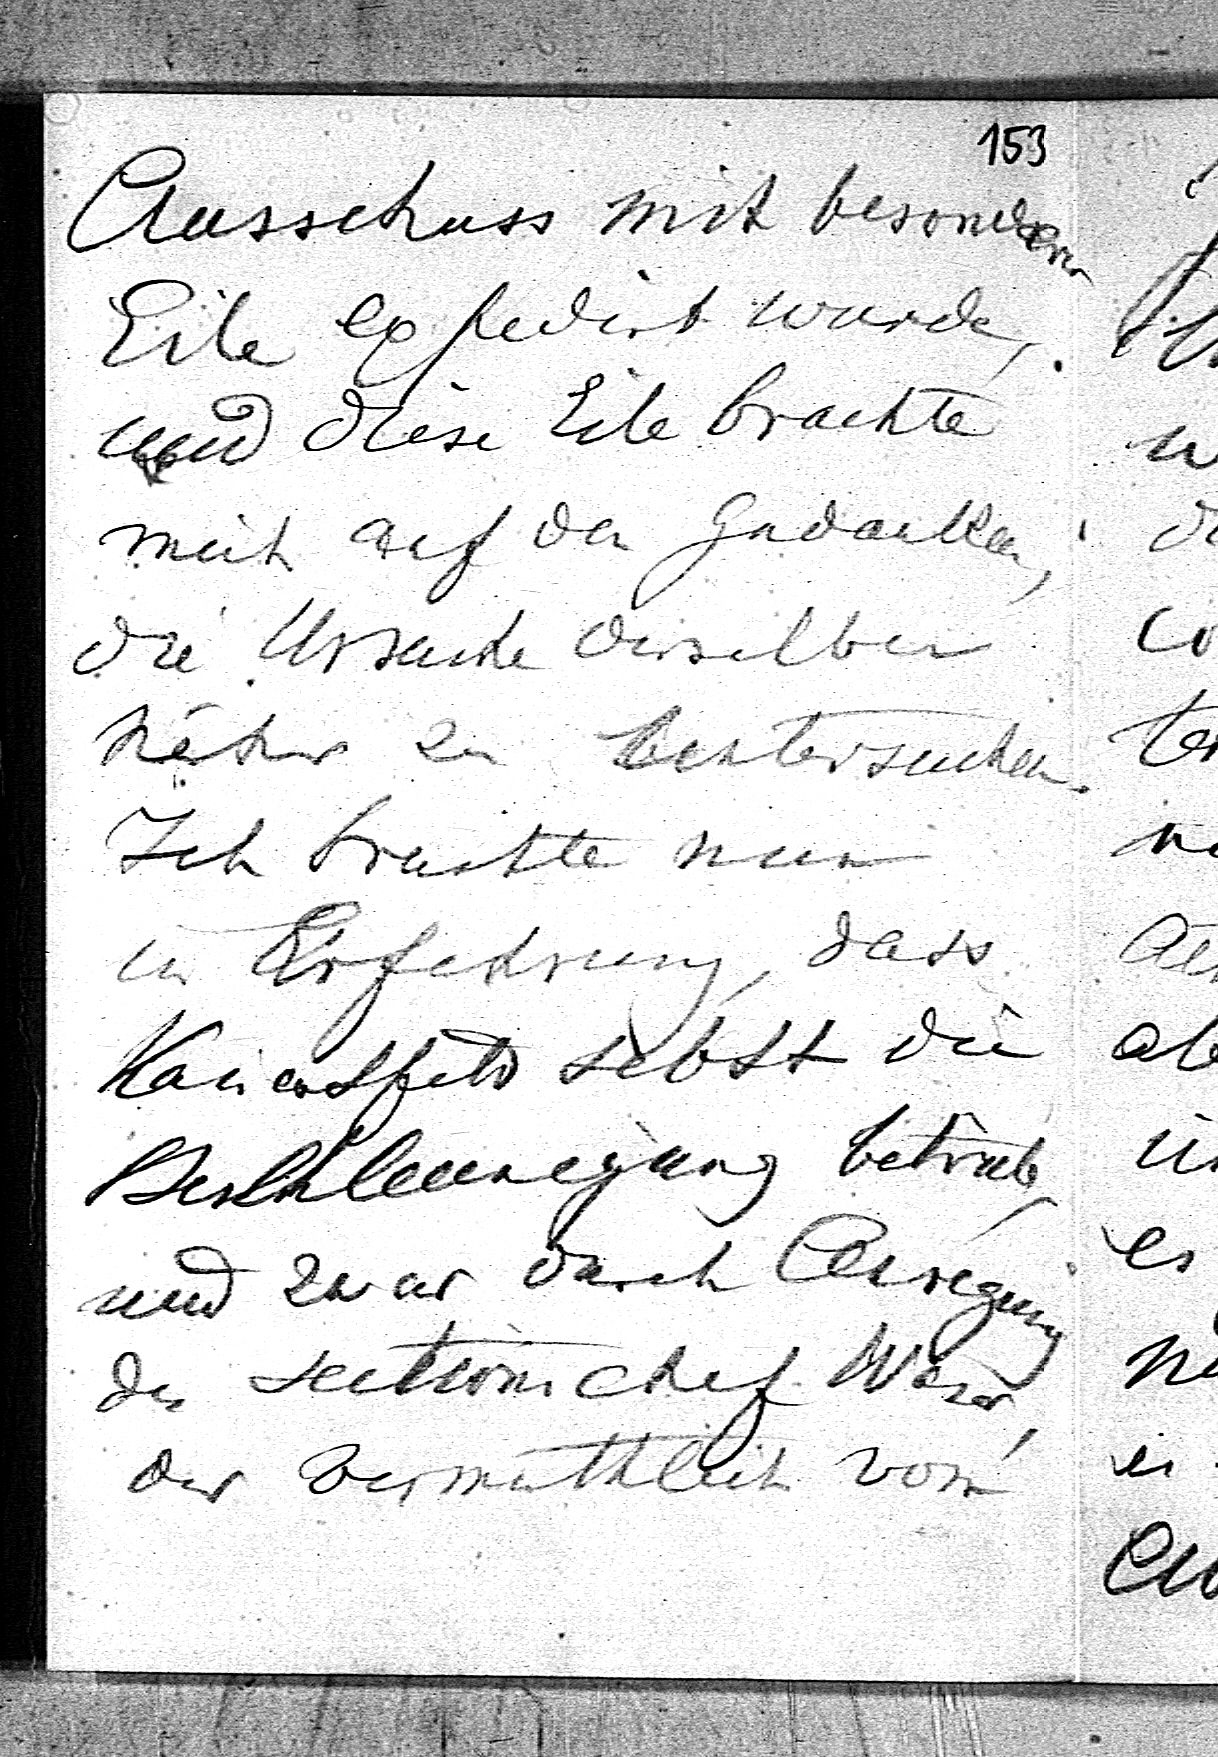 153
Ausschuss mit besonderer
Eile expedirt wurde,
und diese Eile brachte
mich auf den Gedanken,
die Ursache derselben
näher zu untersuchen.
Ich brachte nun
in Erfahrung, dass
Kaisersfeld selbst die
Beschleunigung betrieb,
und zwar durch Anregung
des Sectionschef Waser,
der vermuthlich vom